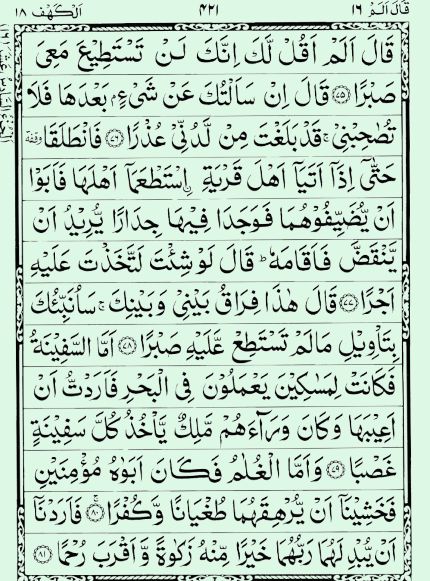 قَالَ اَلَمْ ١٦ ٤٢١ اَلْكَهْف ١٨
قَالَ اَلَمْ اَقُلْ لَّكَ اِنَّكَ لَنْ تَسْتَطِيْعَ مَعِيَ
صَبْرًا ﴿٧٥﴾ قَالَ اِنْ سَاَلْتُكَ عَنْ شَیْءٍۭ بَعْدَهَا فَلَا
تُصٰحِبْنِيْ ۚ قَدْ بَلَغْتَ مِنْ لَّدُنِّيْ عُذْرًا ﴿٧٦﴾ فَانْطَلَقَا وقفة
حَتّٰۤی اِذَاۤ اَتَيَاۤ اَهْلَ قَرْيَةِ ِۨاسْتَطْعَمَاۤ اَهْلَهَا فَاَبَوْا
اَنْ يُّضَيِّفُوْهُمَا فَوَجَدَا فِيْهَا جِدَارًا يُّرِيْدُ اَنْ
يَّنْقَضَّ فَاَقَامَهٗ ؕ قَالَ لَوْ شِئْتَ لَتَّخَذْتَ عَلَيْهِ
اَجْرًا ﴿٧٧﴾ قَالَ هٰذَا فِرَاقُ بَيْنِيْ وَبَيْنِكَ ۚ سَاُنَبِّئُكَ
بِتَاْوِيْلِ مَا لَمْ تَسْتَطِعْ عَّلَيْهِ صَبْرًا ﴿٧٨﴾ اَمَّا السَّفِيْنَةُ
فَكَانَتْ لِمَسٰكِيْنَ يَعْمَلُوْنَ فِي الْبَحْرِ فَاَرَدْتُّ اَنْ
اَعِيْبَهَا وَكَانَ وَرَآءَهُمْ مَّلِكٌ يَّاْخُذُ كُلَّ سَفِيْنَةٍ
غَصْبًا ﴿٧٩﴾ وَاَمَّا الْغُلٰمُ فَكَانَ اَبَوٰهُ مُؤْمِنَيْنِ
فَخَشِيْنَاۤ اَنْ يُّرْهِقَهُمَا طُغْيَانًا وَّكُفْرًا ۚ ﴿٨٠﴾ فَاَرَدْنَاۤ
اَنْ يُّبْدِلَهُمَا رَبُّهُمَا خَيْرًا مِّنْهُ زَكٰوةً وَّاَقْرَبَ رُحْمًا ﴿٨١﴾